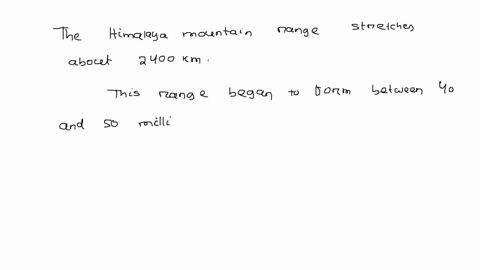 The Himalaya mountain range stretches
about 2400 km.
This range began to form between 40
and 50 milli